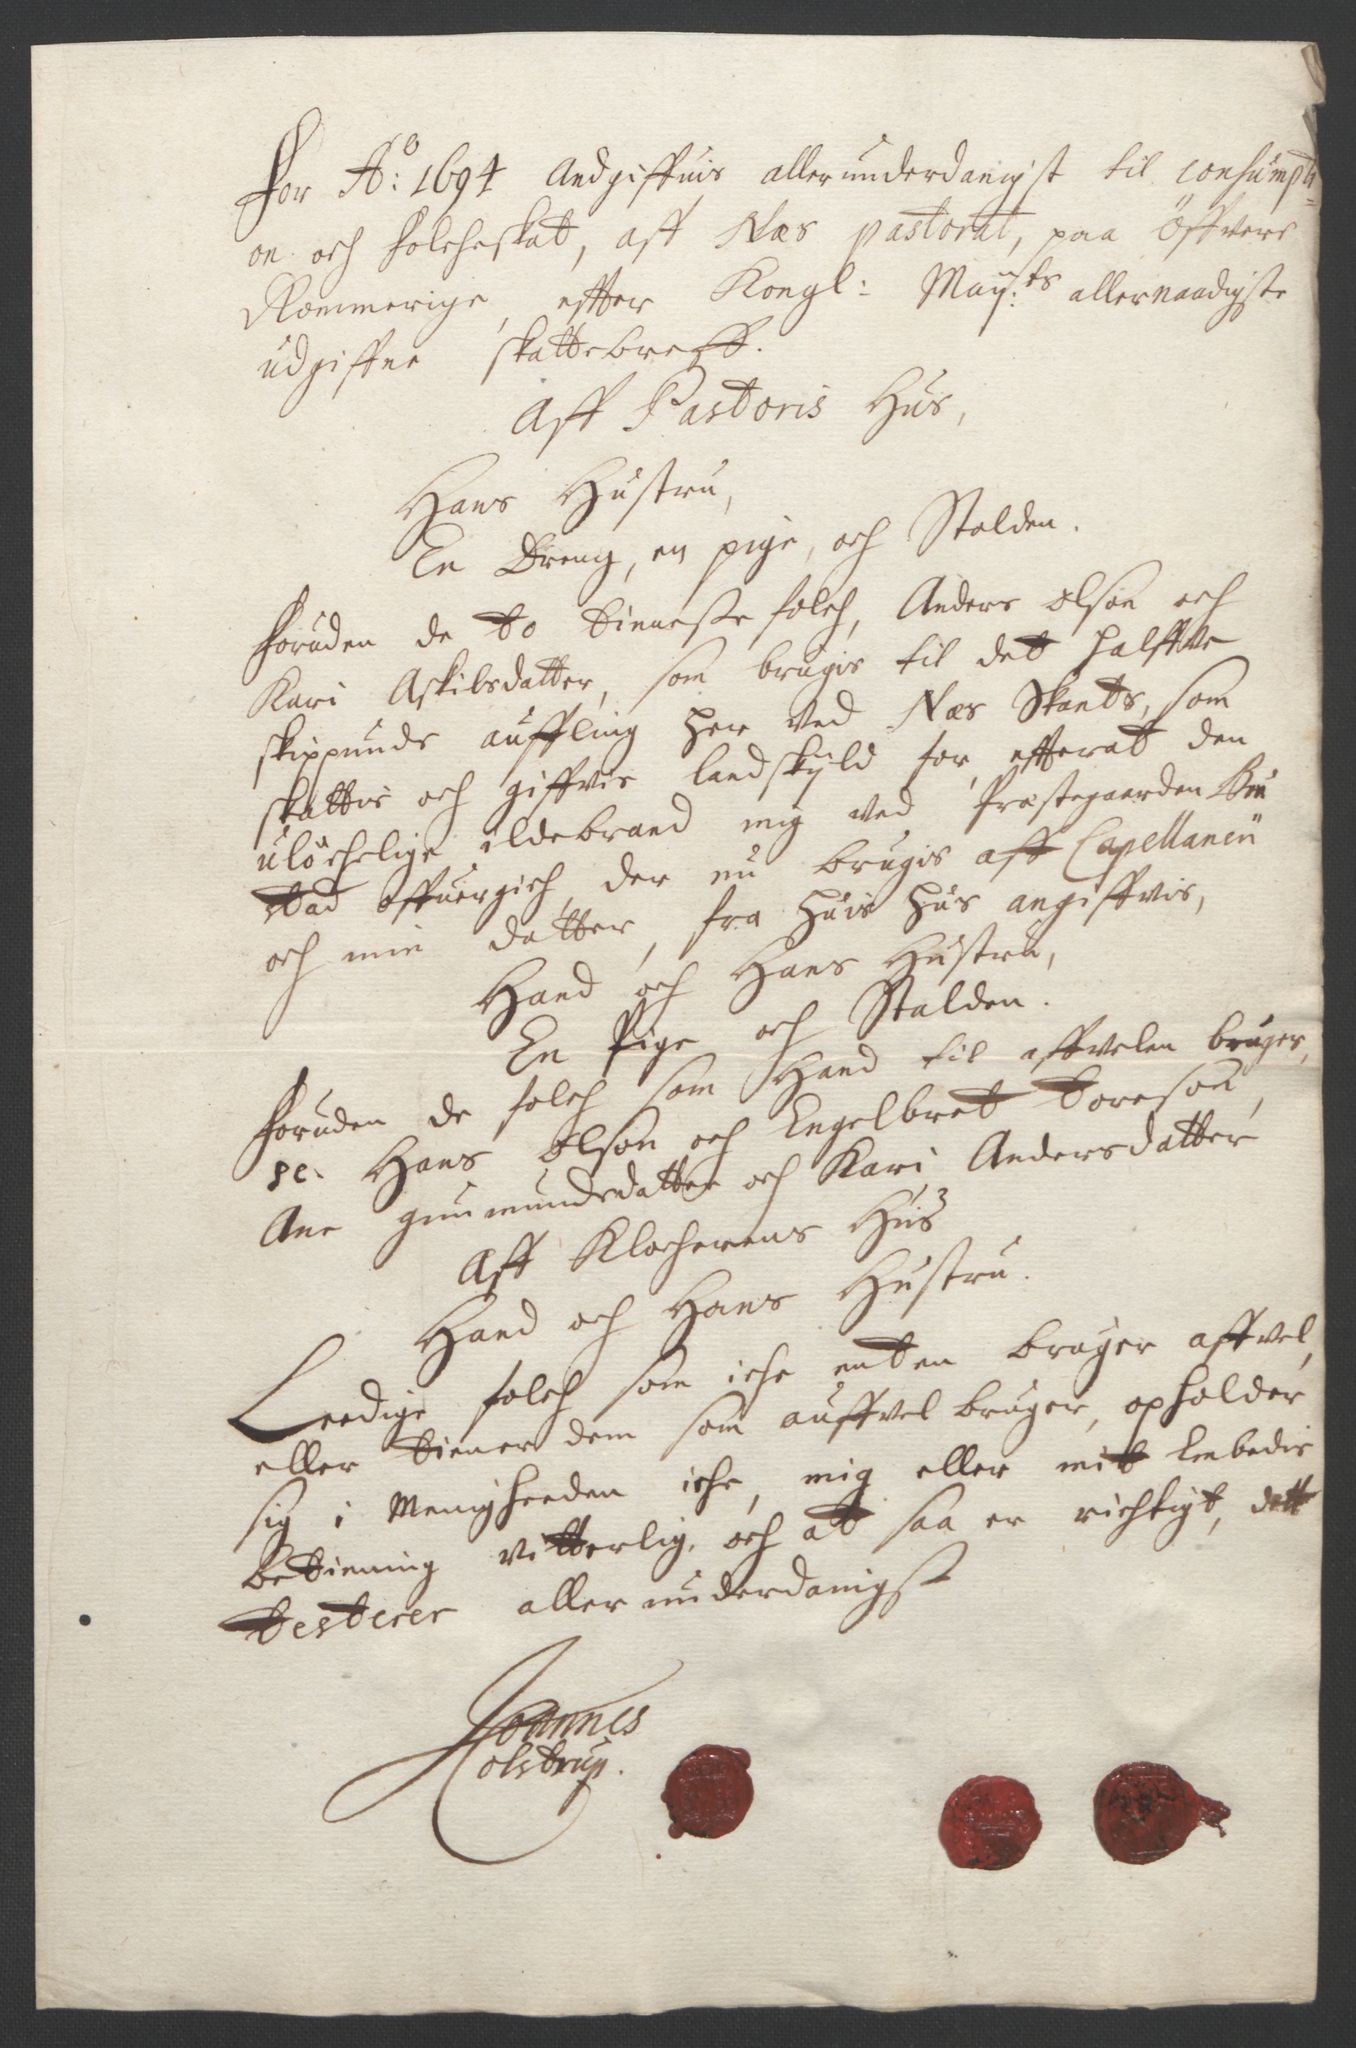 For Ao: 1694 Andgiffuis allerunderdanigst til consumpti=
on och folcheskat, aff Næs pastorat, paa Öffvere
Rommerige, effter Kongl: May:ts allernaadigste
udgiffne skattebreff.
Aff Pastoris Hus,
Hans Hustru,
En Dreng, en pige, och Stalden.
Foruden de to tieneste folch, Anders Olson och
Kari Askilsdatter, som brugis til det halffve
skippunds auffling her ved Næs Skants, som
skattis och giffvis landskyld for, effterat den
ulöchelige ildebrand mig ved Præstegaarden
stad offuergich, der nu brugis aff Capellanen
och min datter, fra huis hus angiffvis,
Hand och Hans Hustru,
En Pige och Stalden.
Foruden de folch som Hand til affvelen bruger,
sc. Hans Olson och Engelbret Toreson,
Ane Gunmundsdatter och Kari Andersdatter
Aff Klocherens Hus
Hand och Hans Hustru.
Leedige folch som iche enten bruger affvel,
eller tiener dem som auffvel bruger, opholder
sig i Menigheeden iche, mig eller mit Embedis
betiening vitterlig, och at saa er richtigt, dett
testerer allerunderdanigst
Joannes
Colstrup.